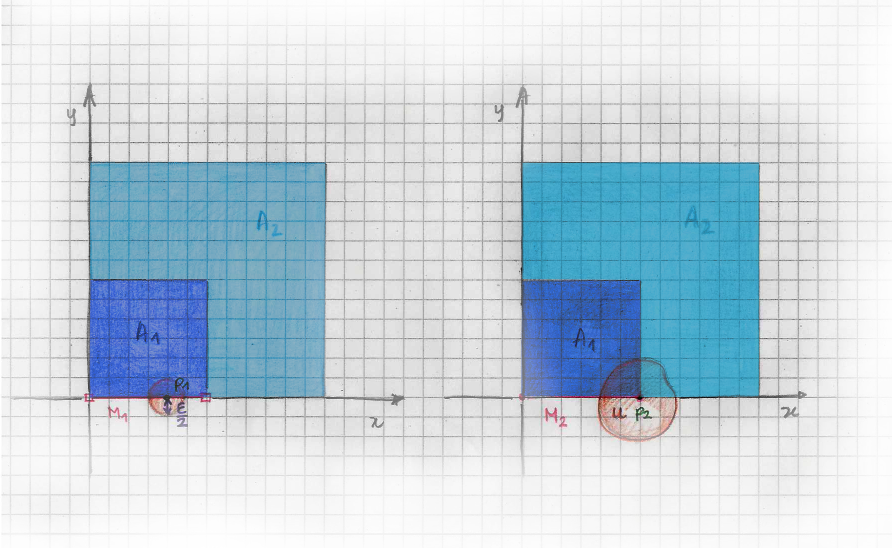 y
A2
A1
P1
M1
ε/2
x
y
A2
A1
M2
U
P2
x